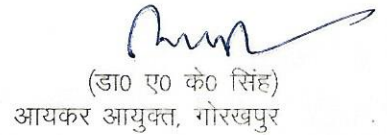 (डा० ए० के० सिंह)
आयकर आयुक्त, गोरखपुर